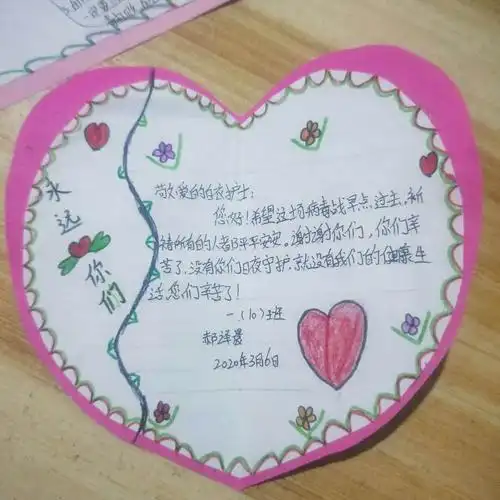 永远
你们
敬爱的白衣护士:
您好!希望这场病毒战早点过去,祈
祷所有的人都平平安安。谢谢你们,你们辛
苦了,没有你们日夜守护,就没有我们的健康生
活,您们辛苦了!
一、(10)班
郝泽
2020年3月6日